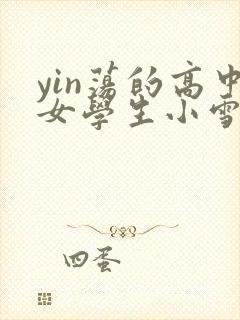 yin蕩的高中
女學生小雪
四蛋